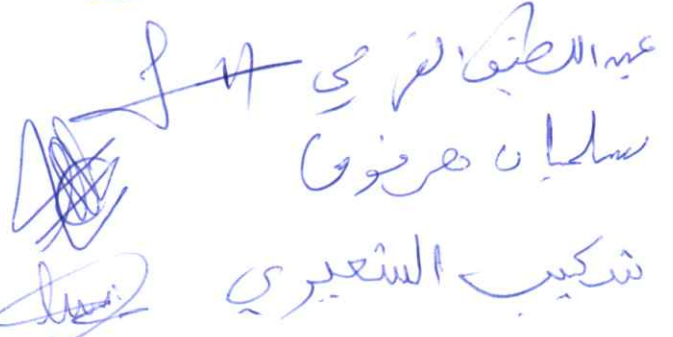 عبد اللطيف الفرحي
سليمان مرزوق
شكيب الشعيري